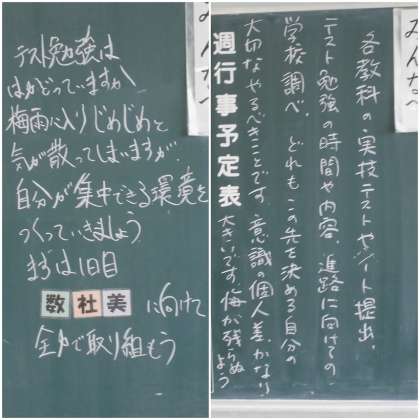 テスト勉強は
はかどっていますか
梅雨に入りじめじめと
気が散ってしまいますが、
自分が集中できる環境を
つくっていきましょう
まずは1日目
数 社 美 に向けて
全力で取り組もう
みんなで
各教科の実技テストやノート提出、
テスト勉強の時間や内容、進路に向けての
学校調べ、どれもこの先を決める自分の
大切なやるべきことです。意識の個人差、かなり
大きいです。悔が残らぬよう
週行事予定表